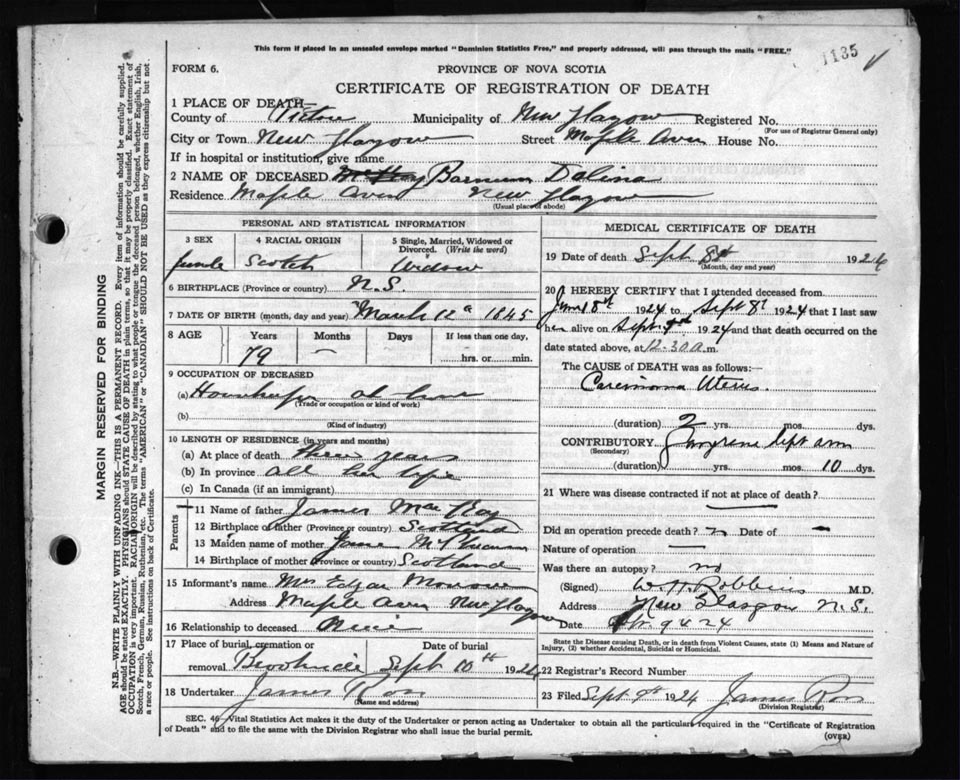 This form if placed in an unsealed envelope marked "Dominion Statistics Free," and properly addressed, will pass through the mails "FREE."
1135
FORM 6.
PROVINCE OF NOVA SCOTIA
CERTIFICATE OF REGISTRATION OF DEATH
1 PLACE OF DEATH—
County of Pictou Municipality of New Glasgow Registered No.
(For use of Registrar General only)
City or Town New Glasgow Street Maple Aven House No.
If in hospital or institution, give name
2 NAME OF DECEASED Barnum Dolina
Residence Maple Aven New Glasgow
(Usual place of abode)
PERSONAL AND STATISTICAL INFORMATION
3 SEX 4 RACIAL ORIGIN 5 Single, Married, Widowed or Divorced. (Write the word)
female Scotch Widow
6 BIRTHPLACE (Province or country) N.S.
7 DATE OF BIRTH (month, day and year) March 12 1845
8 AGE Years Months Days If less than one day,
79 — hrs. or min.
9 OCCUPATION OF DECEASED
(a) Housekeeper at home
(Trade or occupation or kind of work)
(b)
(Kind of industry)
10 LENGTH OF RESIDENCE (in years and months)
(a) At place of death three years
(b) In province all her life
(c) In Canada (if an immigrant)
Parents
11 Name of father James MacKay
12 Birthplace of father (Province or country) Scotland
13 Maiden name of mother Jane
14 Birthplace of mother (Province or country) Scotland
15 Informant's name Mrs Edgar
Address Maple Aven New Glasgow
16 Relationship to deceased Niece
17 Place of burial, cremation or removal Date of burial
Sept 10th 1924
18 Undertaker James Ross
(Name and address)
MEDICAL CERTIFICATE OF DEATH
19 Date of death Sept 8th 1924
(Month, day and year)
20 I HEREBY CERTIFY that I attended deceased from
June 8th 1924 to Sept 8th 1924 that I last saw
her alive on Sept 1924 and that death occurred on
date stated above, at 12.30 a.m.
The CAUSE of DEATH was as follows:—
Carcinoma Uterus
(duration) 2 yrs. mos. dys.
CONTRIBUTORY Gangrene left arm
(Secondary)
(duration) yrs. mos. 10 dys.
21 Where was disease contracted if not at place of death?
—
Did an operation precede death? Date of —
Nature of operation —
Was there an autopsy? no
(Signed) W. H. Robbins M.D.
Address New Glasgow N.S.
Date 9 24
State the Disease causing Death, or in death from Violent Causes, state (1) Means and Nature of Injury, (2) whether Accidental, Suicidal or Homicidal.
22 Registrar's Record Number
23 Filed Sept 9th 1924 James Ross
(Division Registrar)
SEC. 40 Vital Statistics Act makes it the duty of the Undertaker or person acting as Undertaker to obtain all the particulars required in the "Certificate of Registration
of Death" and to file the same with the Division Registrar who shall issue the burial permit.
(OVER)
MARGIN RESERVED FOR BINDING
N.B.—WRITE PLAINLY WITH UNFADING INK—THIS IS A PERMANENT RECORD. Every item of information should be carefully supplied.
AGE should be stated EXACTLY. PHYSICIANS should STATE CAUSE OF DEATH in plain terms, so that it may be properly classified. Exact statement of
OCCUPATION is very important. RACIAL ORIGIN will be described by stating to what people or tongue the deceased person belonged, whether English, Irish,
Scotch, French, German, Russian, Ruthenian, etc. The terms "AMERICAN" or "CANADIAN" SHOULD NOT BE USED as they express citizenship but not
a race or people. See instructions on back of Certificate.